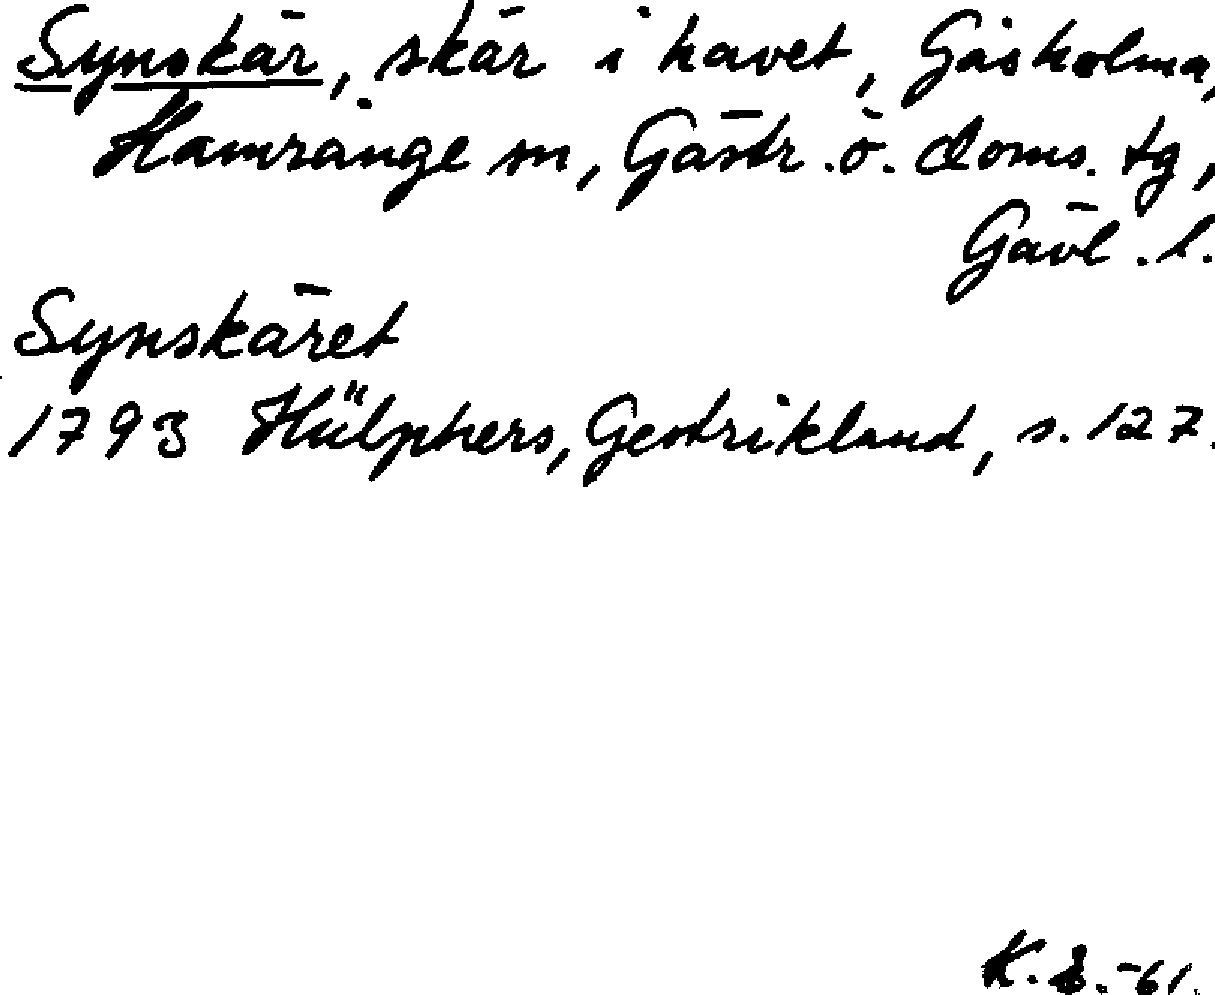 Synskär, skär i havet, Gåsholma,
Hamrånge sn, Gästr. ö. doms. tg,
Gävl. l.
Synskäret
1793 Hülphers, Gestrikland, s. 127.
K. S. -61.